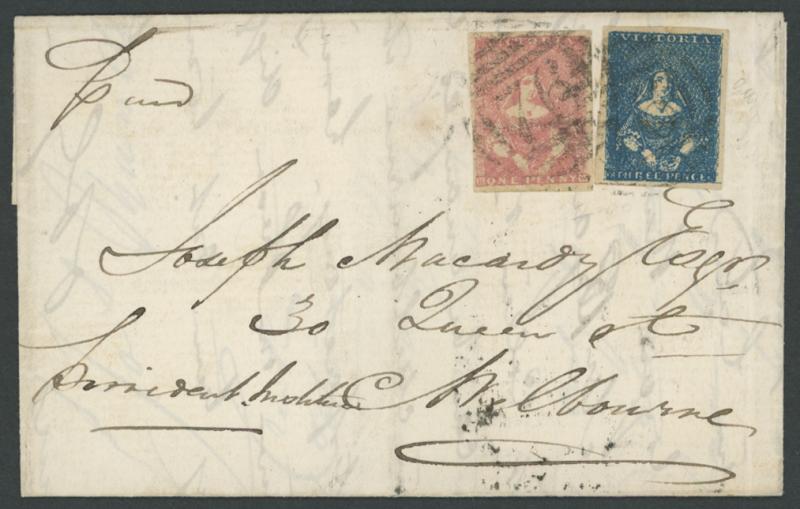 Paid
VICTORIA
ONE PENNY
THREE PENCE
Joseph Macardy Esqr
30 Queen St
Provident Institute Melbourne